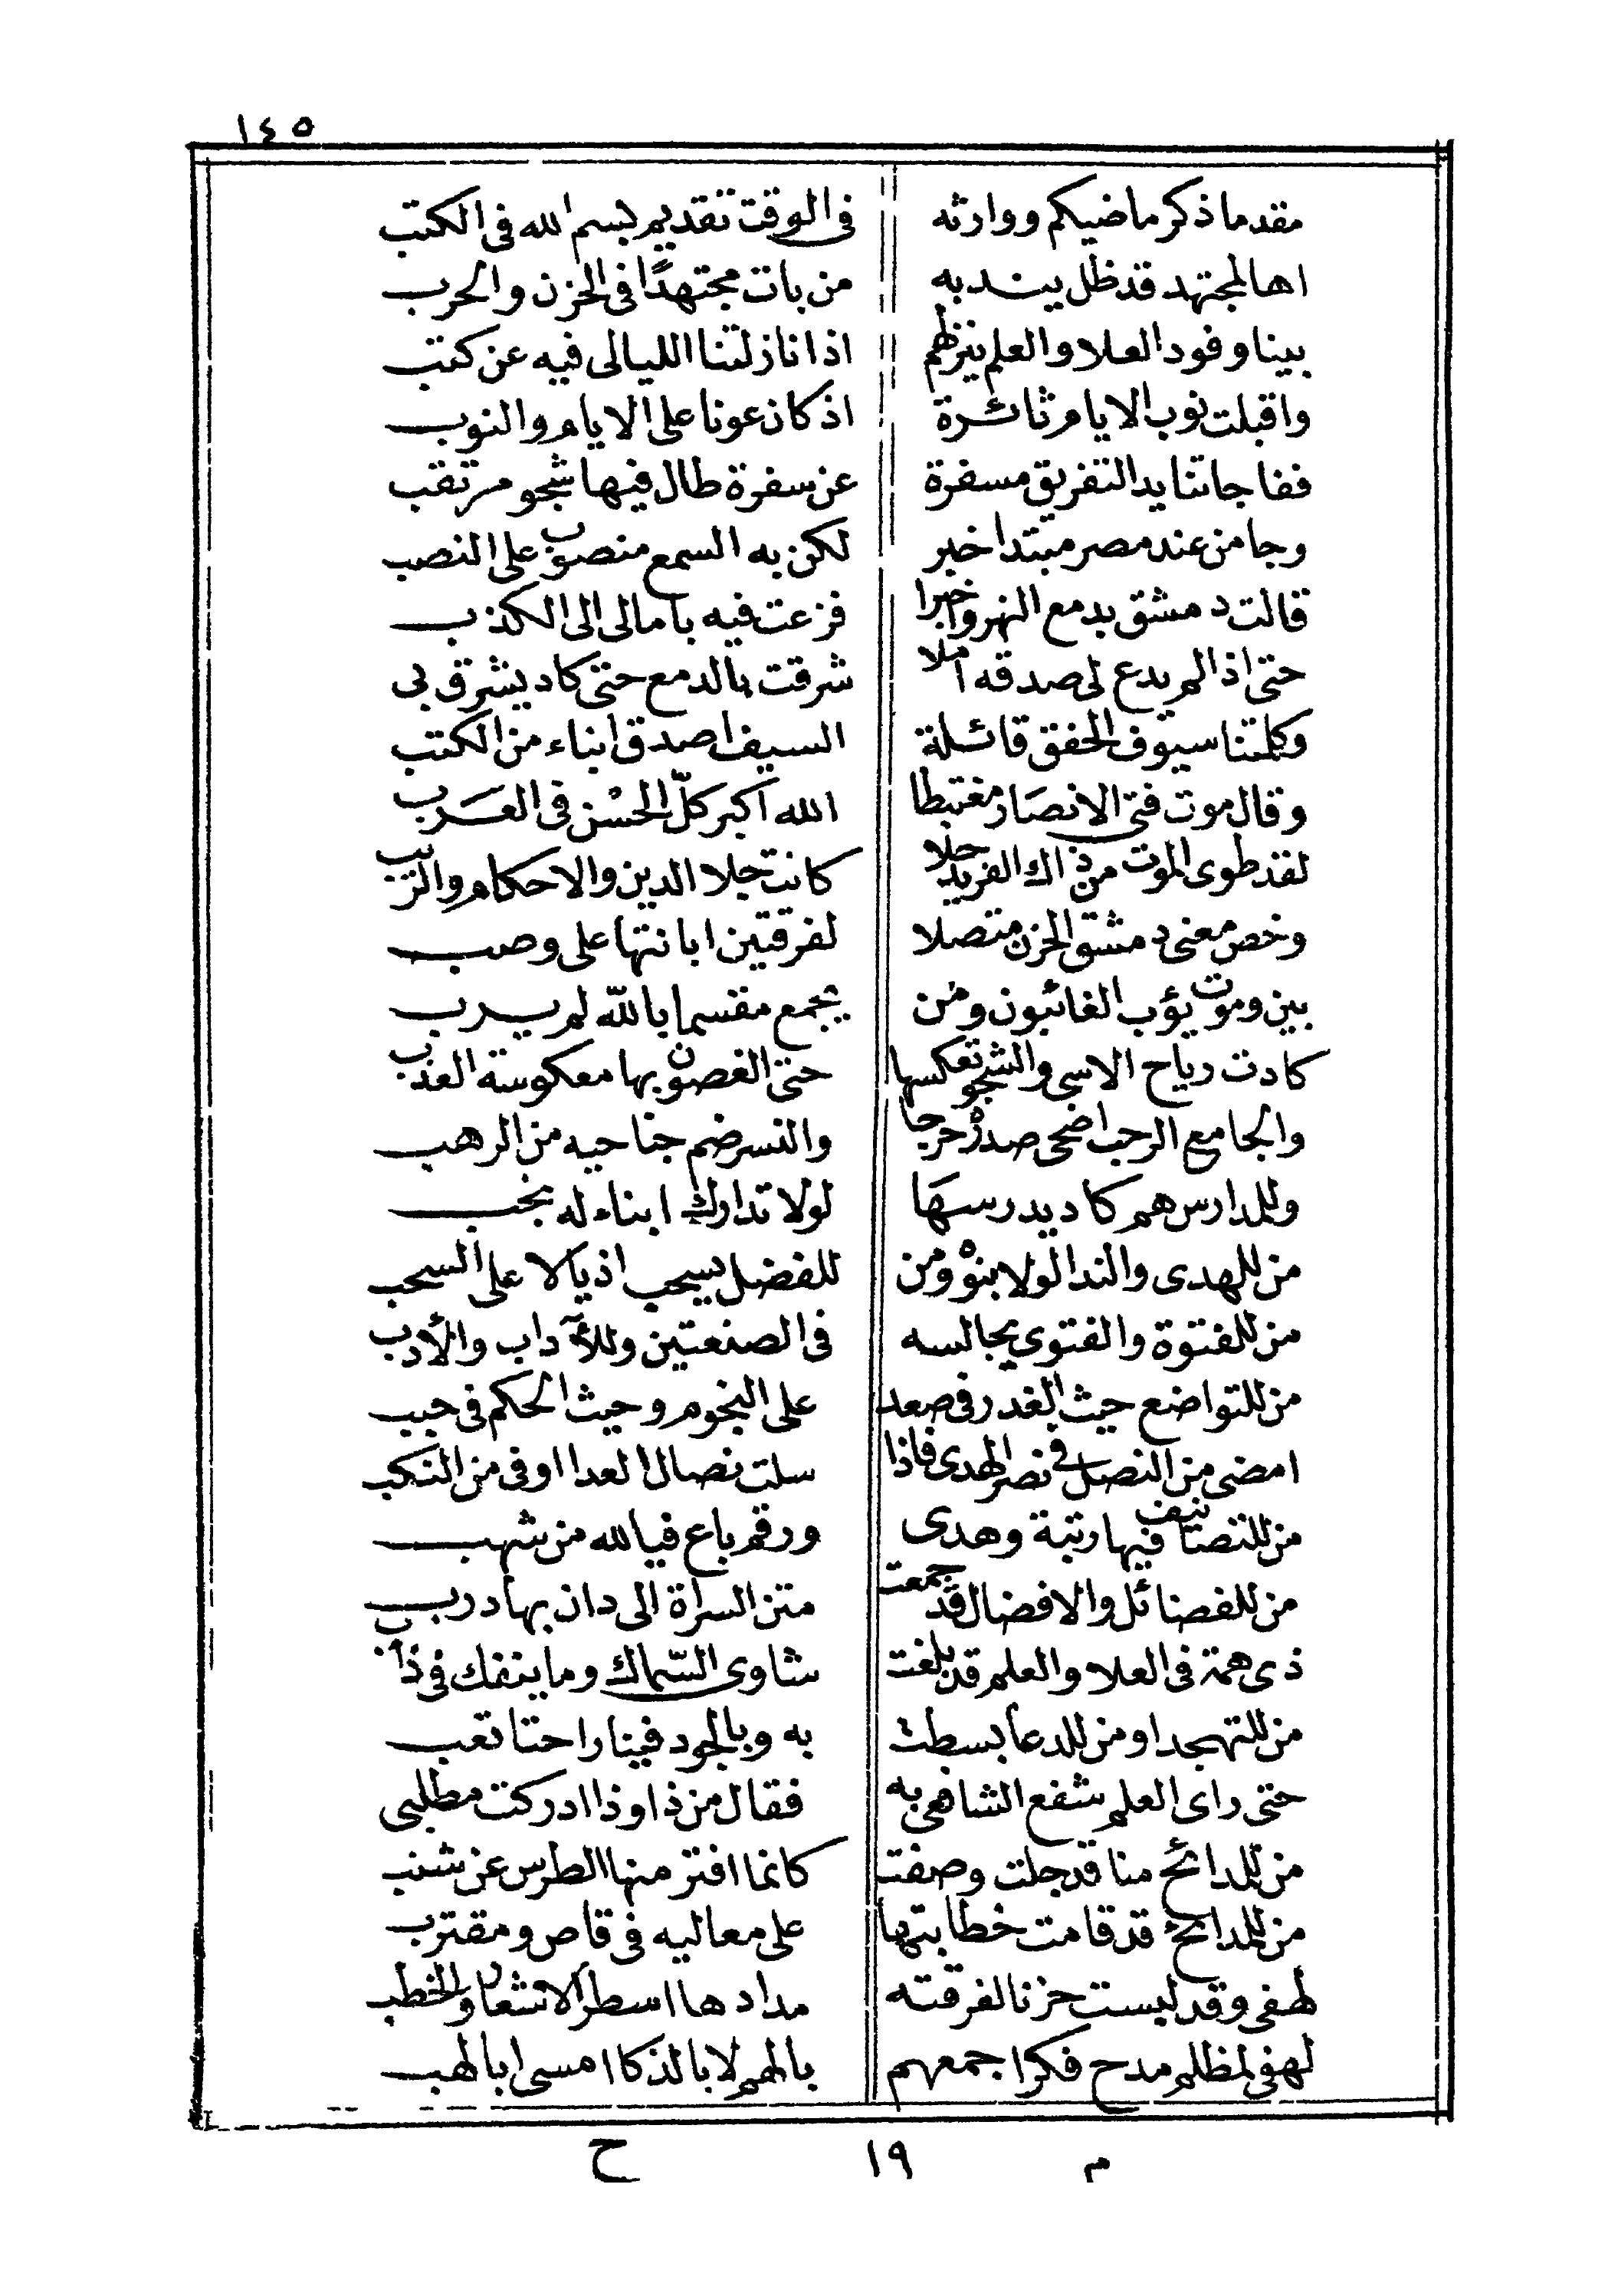 ١٤٥
مقدما ذكر ماضيكم ووارثه في الوقت تقديم بسم الله في الكتب
اها لمجتهد قد ظل يندبه من بات مجتهدًا في الحزن والحرب
بينا وفود العلا والعلم ينزلهم اذا نازلتنا الليالي فيه عن كتب
واقبلت نوب الايام ثائرة اذ كان عونا على الايام والنوب
ففاجاتنا يد التفريق مسفرة عن سفرة طال فيها شجو مرتقب
وجا من عند مصر مبتدا خبر لكن به السمع منصوب على النصب
قالت دمشق بدمع النهر واخبرا فزعت فيه بامالى الى الكذب
حتى اذا لم يدع لى صدقه املا شرقت بالدمع حتى كاد يشرق بى
وكلمتنا سيوف الحفق قائلة السيف اصدق انباء من الكتب
وقال موت فتى الانصار مغتبطا الله اكبر كلّ الحسْن فى العَرَب
لقد طوى الموت من ذاك الفريد حلا كانت حلا الدين والاحكام والرتب
وخص معنى دمشق الحزن متصلا لفرقتين ابانتها على وصب
بين وموت يؤب الغائبون ومن يجمع مقسما بالله لم يرب
كادت رياح الاسى والشجو تعكسها حتى الغصون بها معكوسة العذب
والجامع الرحب اضحى صدرْ حرجا والنسر ضم جناحيه من الرهب
وللمدارس هم كاد يدرسها لولا تدارك ابناء له نجب
من للهدى والندا لولا بنوْ ومن للفضل يسحب اذيالا على السحب
من للفتوة والفتوى يجالسه فى الصنعتين وللآداب والأدب
من للتواضع حيث الغدر فى صعد على النجوم وحيث الحكم فى حبب
امضى من النصل فى نصر الهدى فاذا سلت نصال العدا اوفى من النكب
من للتصانيف فيها رتبة وهدى ورقم باع فيالله من شهب
من للفضائل والافضال قد جمعت متن السراة الى دان بها درب
ذى همة فى العلا والعلم قد بلغت شاوى السّماك وما ينفك فى ذأب
من للتهجد او من للدعا بسطت به وبالجود فينا راحتا تعب
حتى راى العلم شفع الشاهى به فقال من ذا وذا ادركت مطلبى
من للمدائح منا قد جلت وصفت كانما افتر منها الطرس عن شنب
من للمدائح قد قامت خطابتها على معاليه فى قاص ومقترب
لهفى وقد لبست حزنا لفرقته مدادها اسطر الاشعار والخطب
لهفى لمظلم مدح فكر اجمعهم بالهم لا بالذكا امسى ابا لهب
م ١٩ ح